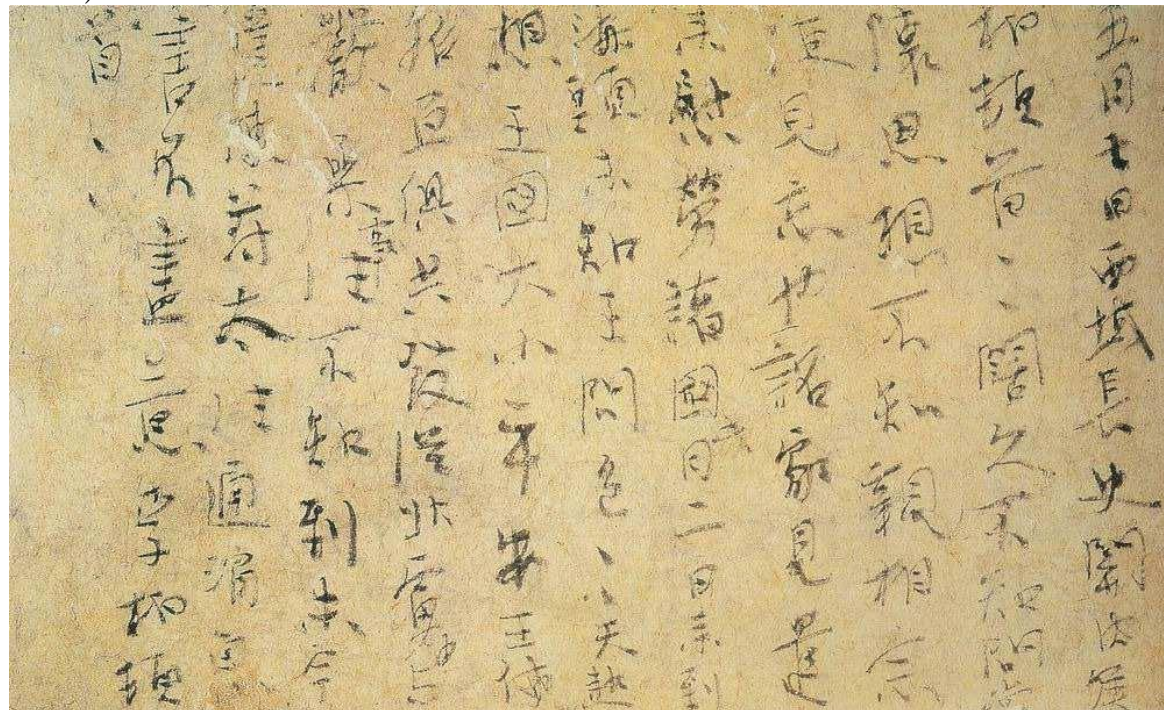 五月七日西域長史關內侯
柏頓首、、闊久不知問常
懷思想不知親相念
便見忘也詔家見遣
來慰勞諸國此月二日來到
海頭未知王問邑、、天熱
想王國大小平安王使
招亘俱共發從北虜中與
嚴參事往不知到未今
遣使苻太往通消息
書不盡意李柏頓
首、、